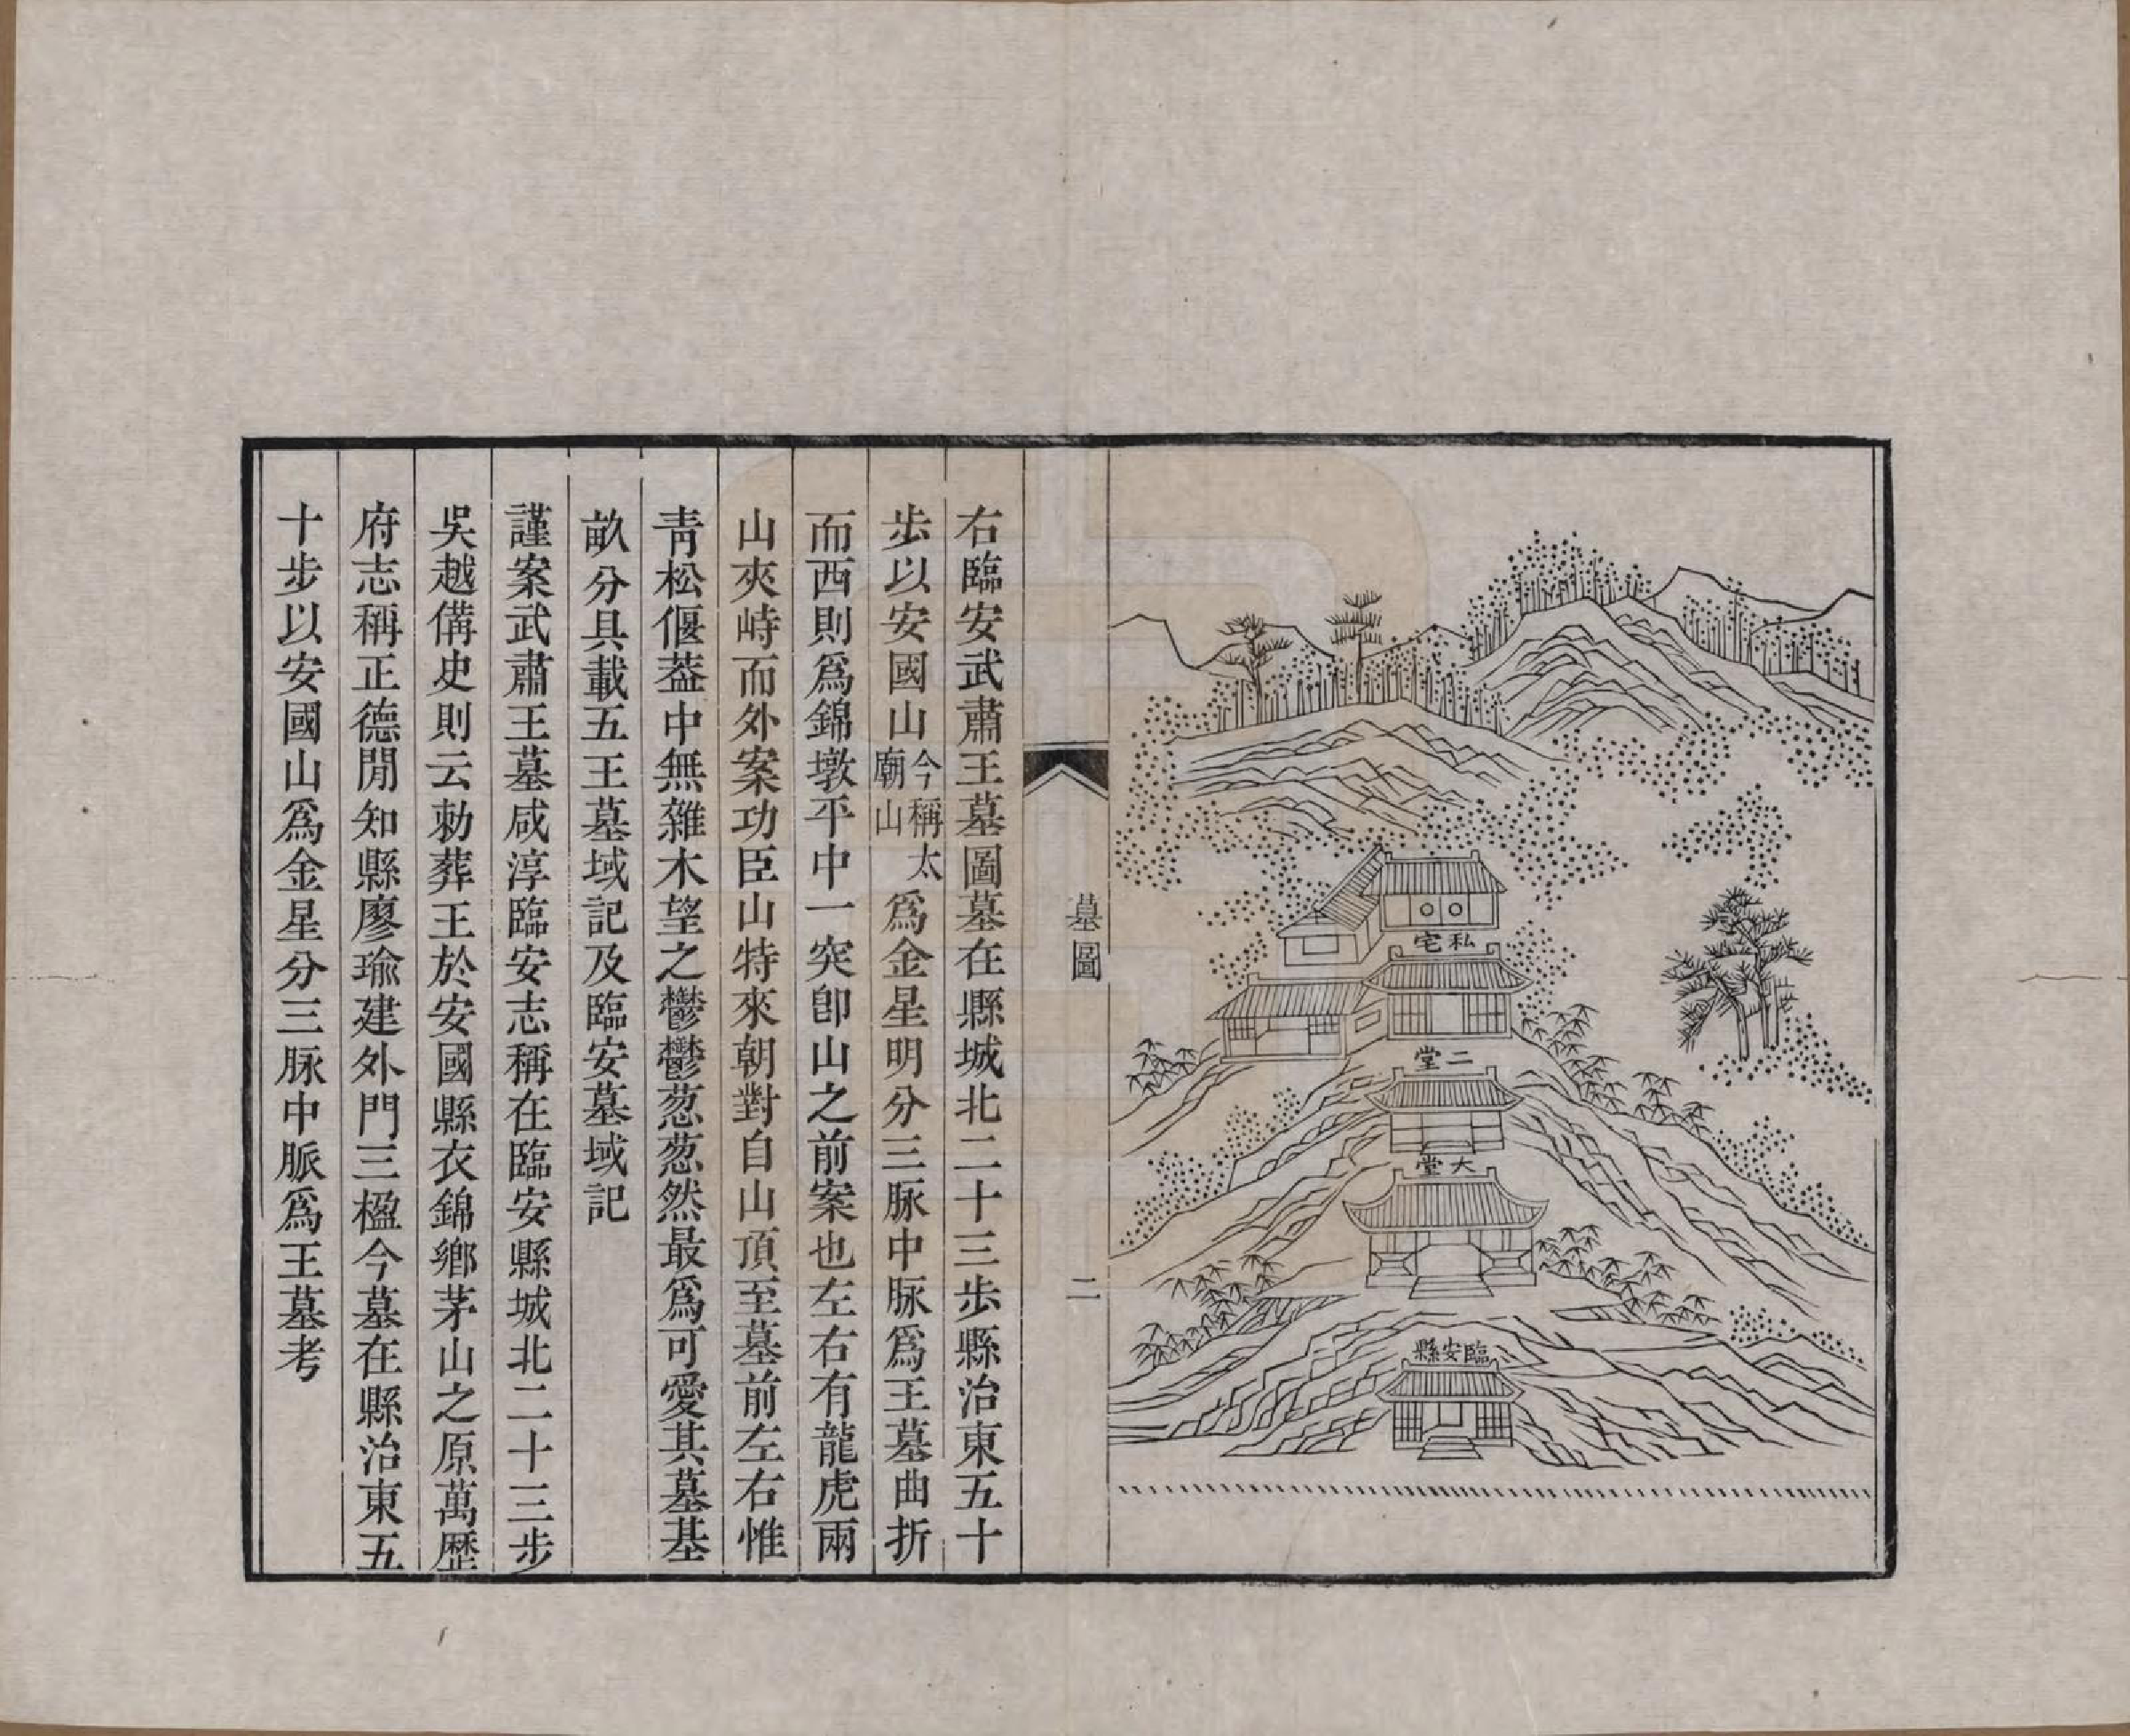 私宅
二堂
大堂
臨安縣
墓圖
二
右臨安武肅王墓圖墓在縣城北二十三步縣治東五十
步以安國山今稱太廟山為金星明分三脉中脉為王墓曲折
而西則為錦墩平中一突卽山之前案也左右有龍虎兩
山夾峙而外案功臣山特來朝對自山頂至墓前左右惟
靑松偃葢中無雜木望之鬱鬱葱葱然最為可愛其墓基
畝分具載五王墓域記及臨安墓域記
謹案武肅王墓咸淳臨安志稱在臨安縣城北二十三步
吳越備史則云勅葬王於安國縣衣錦鄉茅山之原萬歷
府志稱正德閒知縣廖瑜建外門三楹今墓在縣治東五
十步以安國山為金星分三脉中脈為王墓考